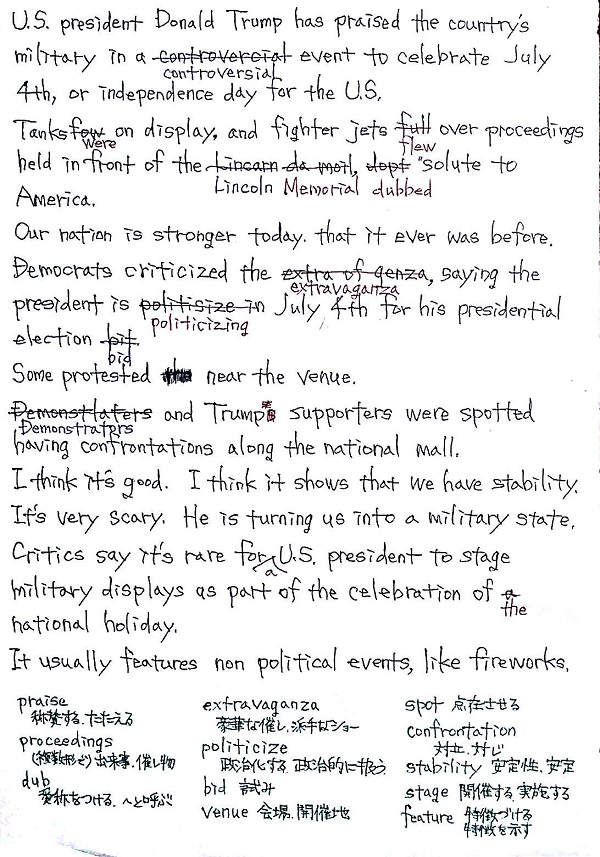 U.S. president Donald Trump has praised the country's
military in a controvercial event to celebrate July
controversial
4th, or independence day for the U.S.
Tanks fow on display, and fighter jets full over proceedings
were flew
held in front of the Lincarn da moil, dopt "solute to
Lincoln Memorial dubbed
America.
Our nation is stronger today. that it ever was before.
Democrats criticized the extra of genza, saying the
extravaganza
president is politisize in July 4th for his presidential
politicizing
election bit
bid
Some protested near the venue.
Demonstlaters and Trump supporters were spotted
Demonstraters
having confrontations along the national mall.
I think it's good. I think it shows that we have stability.
It's very scary. He is turning us into a military state.
Critics say it's rare for U.S. president to stage
a
military displays as part of the celebration of a
the
national holiday.
It usually features non political events, like fireworks.
praise
称賛する、たたえる
proceedings
(複数形で)出来事、催し物
dub
愛称をつける、〜と呼ぶ
extravaganza
豪華な催し、派手なショー
politicize
政治化する、政治的に扱う
bid 試み
venue 会場、開催地
spot 点在させる
confrontation
対立、対じ
stability 安定性、安定
stage 開催する、実施する
feature 特徴づける
特徴を示す